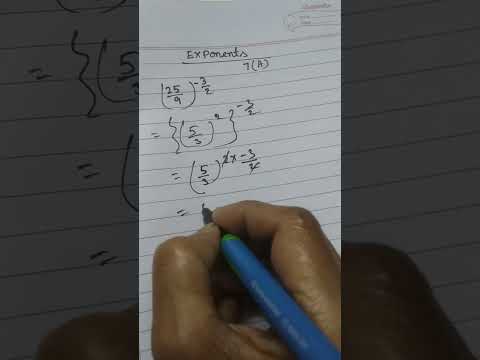 Exponents
7(A)
(25/9)^(-3/2)
= {(5/3)^2}^(-3/2)
= (5/3)^(2x-3/2)
= (